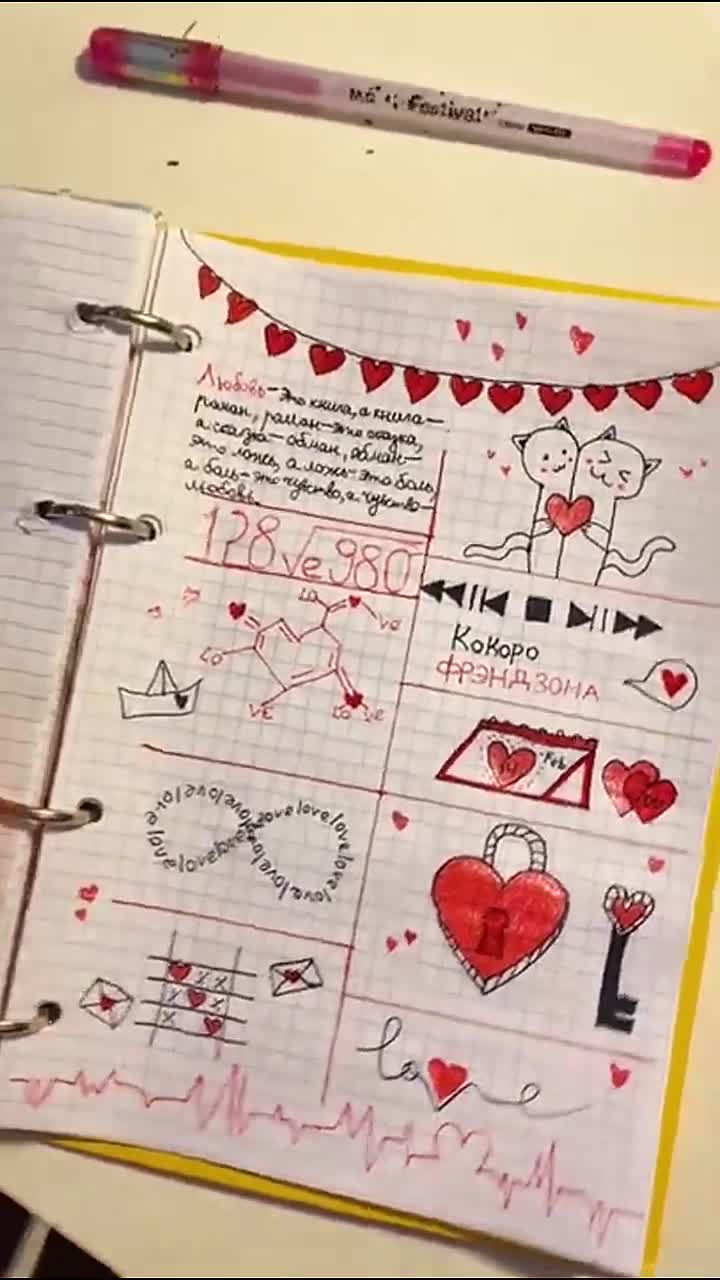 Festival
Любовь-это книга, а книга—
роман, роман-это сказка,
а сказка-обман, обман—
это ложь, а ложь-это боль,
а боль-это чувство, а чувство—
любовь.
128√e980
LO
VE
LO
VE
LO VE
Кокоро
ФРЭНДЗОНА
14 Feb
lovelovelovelovelovelovelovelovelove
X X
X X
X
love